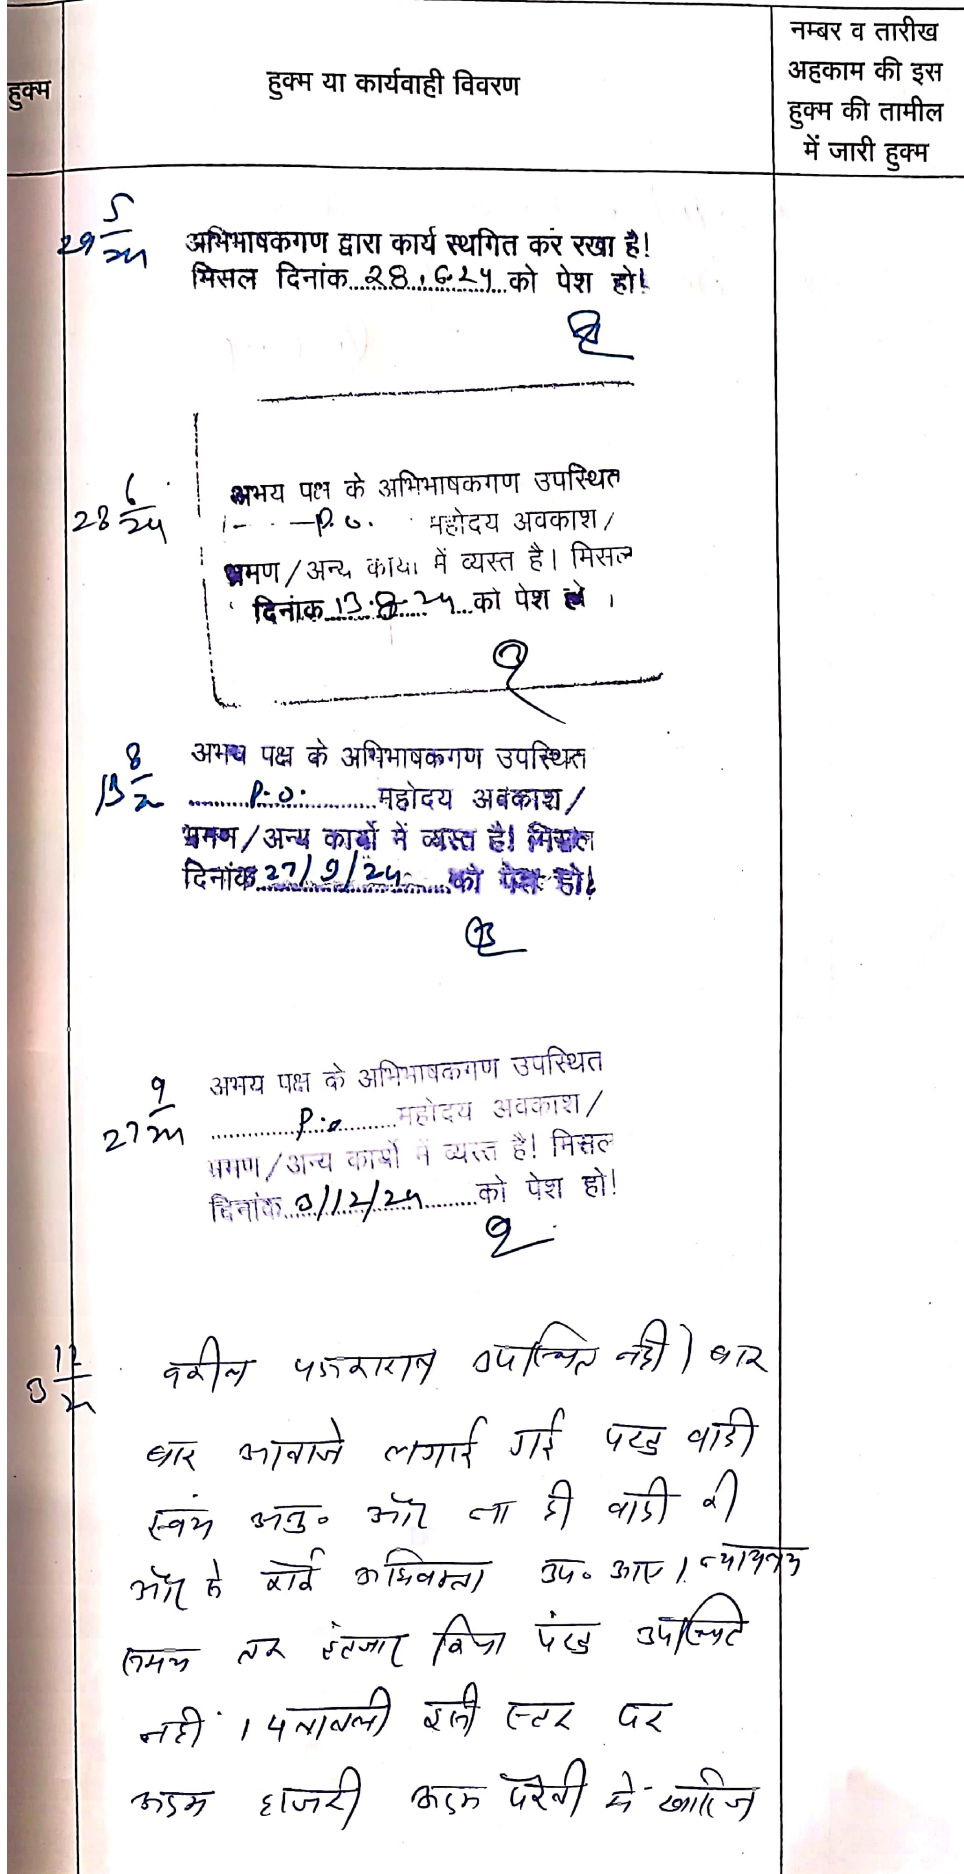 हुक्म
हुक्म या कार्यवाही विवरण
नम्बर व तारीख
अहकाम की इस
हुक्म की तामील
में जारी हुक्म
29 5/24
अभिभाषकगण द्वारा कार्य स्थगित कर रखा है!
मिसल दिनांक 28.6.24 को पेश हो!
28 6/24
अभय पक्ष के अभिभाषकगण उपस्थित
P.O. महोदय अवकाश/
भ्रमण/अन्य कार्यो में व्यस्त है। मिसल
दिनांक 13.8.24 को पेश हो।
13 8/24
अभय पक्ष के अभिभाषकगण उपस्थित
P.O. महोदय अवकाश/
भ्रमण/अन्य कार्यो में व्यस्त है! मिसल
दिनांक 27/9/24 को पेश हो!
27 9/24
अभय पक्ष के अभिभाषकगण उपस्थित
P.O. महोदय अवकाश/
भ्रमण/अन्य कार्यो में व्यस्त है! मिसल
दिनांक 3/12/24 को पेश हो!
3 12/24
वकील पक्षकारान उपस्थित नही। बार
बार आवाजे लगाई गई परन्तु वादी
स्वंय अनु० और ना ही वादी की
और से कोई अधिवक्ता उप० आए। न्यायालय
समय तक इंतजार किया परंतु उपस्थिति
नही। पत्रावली इसी स्टर पर
अदम हाजरी अदम पैरवी में खारिज